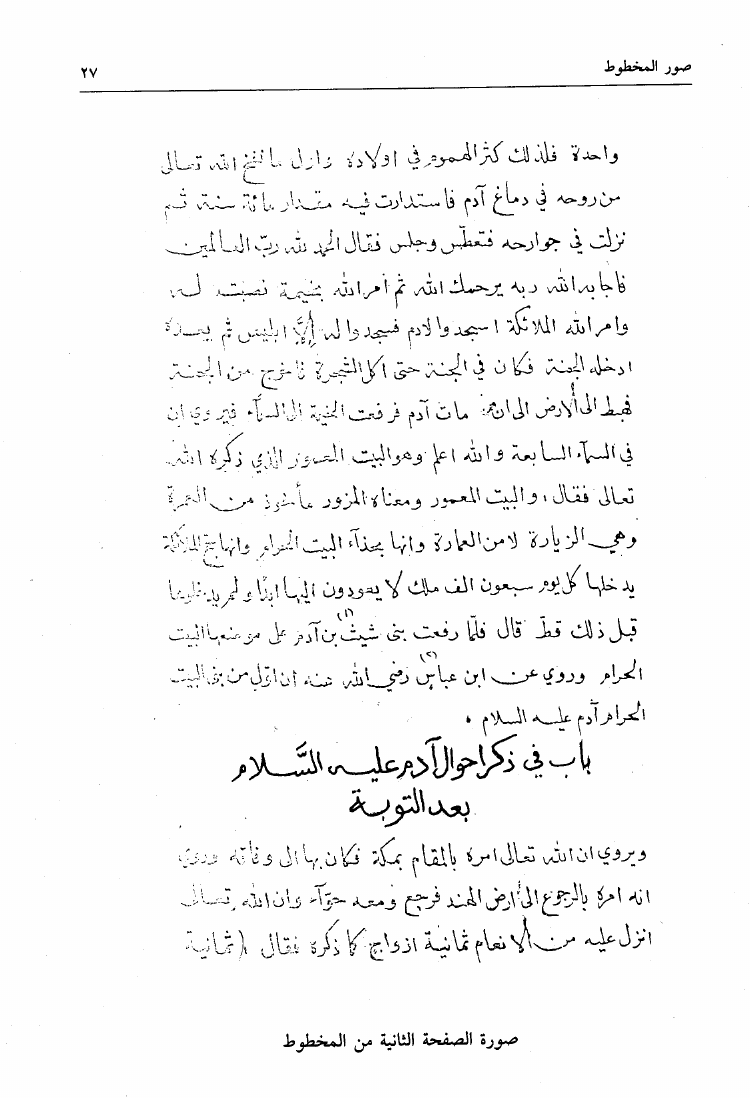 صور المخطوط ٢٧
واحدة فلذلك كثر الهموم في اولاده واول ما نفخ الله تعالى
من روحه في دماغ آدم فاستدارت فيه مقدار مائة سنة ثم
نزلت في جوارحه فتعطّس وجلس فقال الحمد لله ربّ العالمين
فاجابه الله ربه يرحمك الله ثم أمر الله بخيمة نصبت له
وامر الله الملائكة اسجدوا لادم فسجدوا له إلاّ ابليس ثم بعده
ادخله الجنة فكان في الجنة حتى اكل الشجرة فاخرج من الجنة
فهبط الى الأرض الى ان مات آدم فرفعت الخيمة الى السمآء فيروي ان
في السمآء السابعة والله اعلم وهو البيت المعمور الذي ذكره الله
تعالى فقال، والبيت المعمور ومعناه المزور مأخوذ من العمرة
وهي الزيارة لا من العمارة وانها بحذآء البيت الحرام وانها الملائكة
يدخلها كل يوم سبعون الف ملك لا يعودون اليها ابدًا ولم يدخلوها
قبل ذلك قطّ قال فلمّا رفعت بنى شيث(١) بن آدم على موضعها البيت
الحرام وروي عن ابن عباس(٢) رضي الله عنه ان اوّل من بنى البيت
الحرام آدم عليه السلام .
باب في ذكر احوال آدم عليه السَّلام
بعد التوبة
ويروي ان الله تعالى امره بالمقام بمكة فكان بها الى وفاته وروي
انه امره بالرجوع الى أرض الهند فرجع ومعه حوّآء وان الله تعالى
انزل عليه من ألانعام ثمانية ازواج كما ذكره فقال (ثمانية
صورة الصفحة الثانية من المخطوط